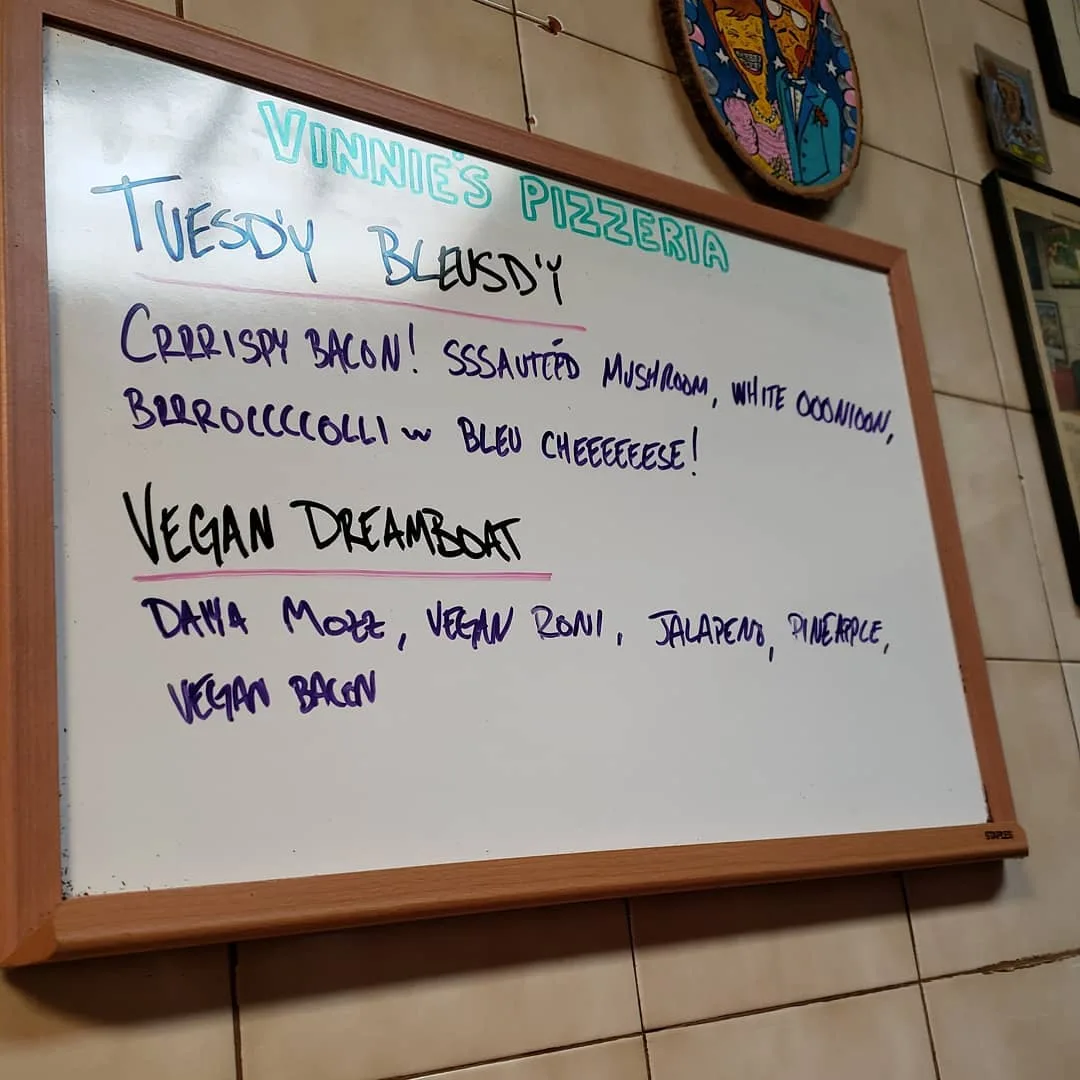 VINNIE'S PIZZERIA
TUESD'Y BLEUSD'Y
CRRRISPY BACON! SSSAUTÉÉD MUSHROOM, WHITE OOONIOON,
BRRROCCCCOLLI w BLEU CHEEEEEESE!
VEGAN DREAMBOAT
DAIYA MOZZ, VEGAN RONI, JALAPENO, PINEAPPLE,
VEGAN BACON
STAPLES